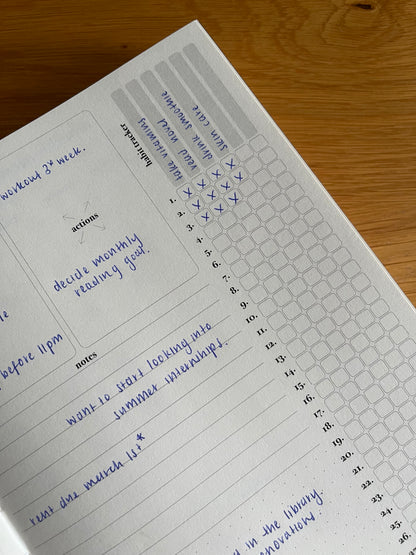 workout 3x week.
actions
decide monthly
reading goal.
before 11pm
habit tracker
take vitamins
read novel
drink smoothie
skin care
1. x x x x
2. x x x x
3. x x x
4.
5.
6.
7.
8.
9.
10.
11.
12.
13.
14.
15.
16.
17.
18.
19.
20.
21.
22.
23.
24.
25.
26.
notes
want to start looking into
summer internships.
rent due march 1st*
in the library.